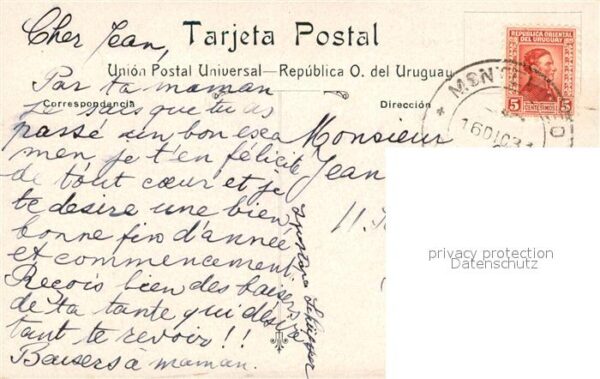 Cher Jean,
Tarjeta Postal
Unión Postal Universal—República O. del Uruguay
Correspondencia
Dirección
REPUBLICA ORIENTAL
DEL URUGUAY
5 5
CENTESIMOS
16 DIC 31
Par ta maman
je sais que tu as
passé un bon exa
men, je t'en félicite
de tout cœur et je
te desire une bien
bonne fin d'année
et commencement.
Reçois bien des baisers
de ta tante qui désire
tant te revoir!!
Baisers à maman.
Monsieur
Jean
11
privacy protection
Datenschutz